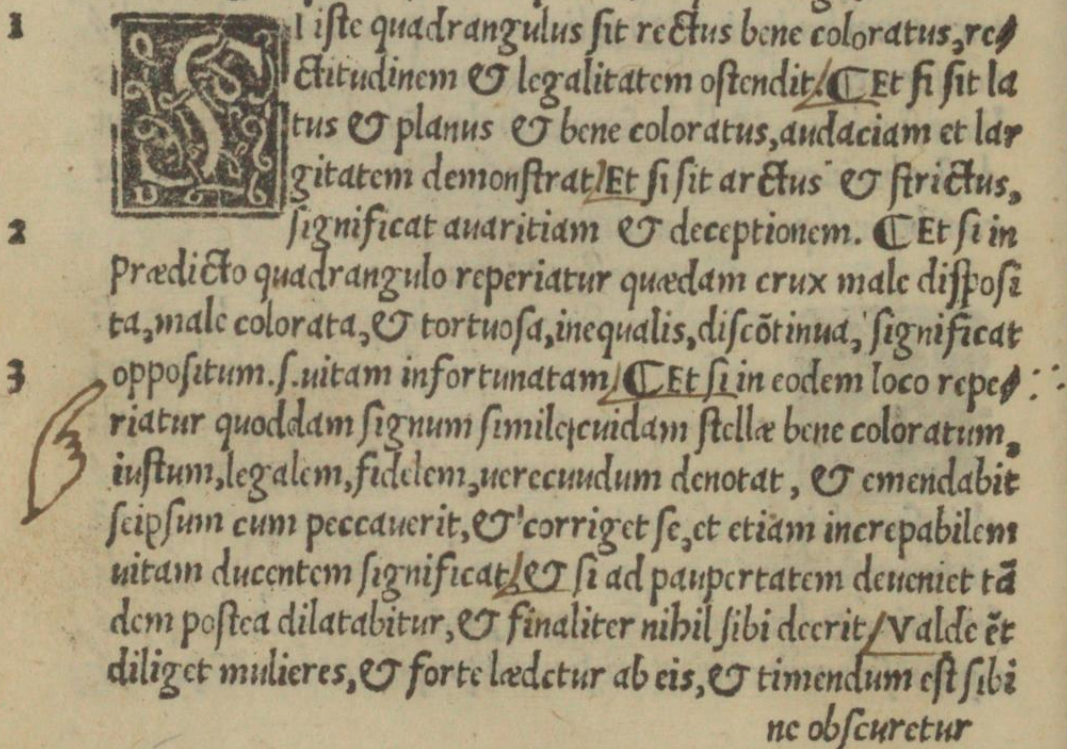 1 SI iste quadrangulus sit rectus bene coloratus, re-
ctitudinem & legalitatem ostendit. ¶ Et si sit la
tus & planus & bene coloratus, audaciam et lar
gitatem demonstrat. Et si sit arctus & strictus,
2 significat auaritiam & deceptionem. ¶ Et si in
prædicto quadrangulo reperiatur quædam crux male disposi
ta, male colorata, & tortuosa, inequalis, discõtinua, significat
3 oppositum. s. uitam infortunatam. ¶ Et si in eodem loco repe-
riatur quoddam signum simile cuidam stellæ bene coloratum,
iustum, legalem, fidelem, uerecuudum denotat, & emendabit
seipsum cum peccauerit, & corriget se, et etiam increpabilem
uitam ducentem significat, & si ad paupertatem deueniet tã
dem postea dilatabitur, & finaliter nihil sibi deerit. Valde ẽt
diliget mulieres, & forte lædetur ab eis, & timendum est sibi
ne obscuretur